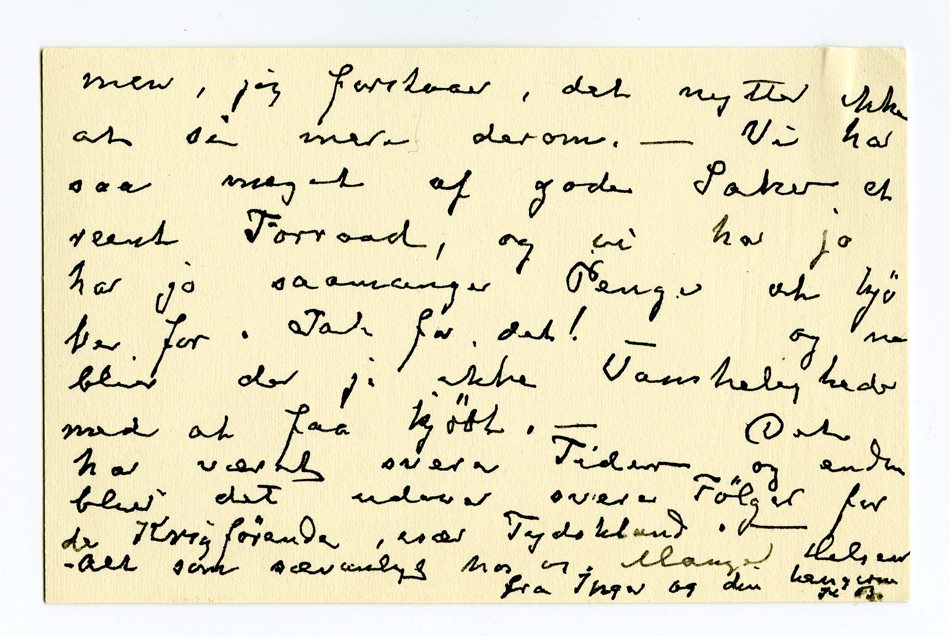 men, jeg forstaaer, det nytter ikke
at si mere derom. — Vi har
saa meget af gode Saker et
reent Forraad, og vi har jo
har jo saamange Penge at kjö
ber for. Tak for det!  og nu
bliver der jo ikke Vanskeligheder
med at faa kjöbt. — Det
har været svære Tider og endnu
bliver det udover svære Fölger for
de Krigförende, især Tydskland. —
-Alt som sævanligt hos os. Mange Hilsener
fra Inger og din hengivne